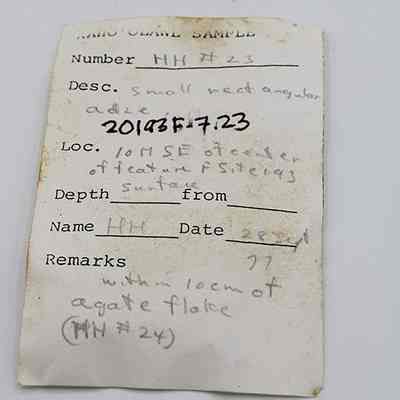 KAHO'OLAWE SAMPLE
Number HH # 23
Desc. small rectangular
adze
20193F-7.23
Loc. 10M SE of center
of feature F Site 193
surface
Depth from
Name HH Date 28 Sept
77
Remarks
within 10cm of
agate flake
(HH # 24)